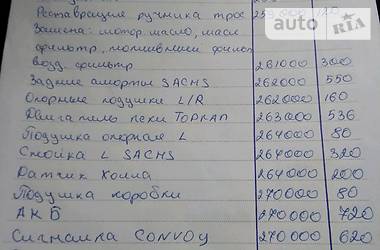 auto RIA
Реставрация ручника трос 259000 120
Замена: мотор масло, масл
фильтр, топливный фильтр
возд. фильтр. 261000 300
Задние аморты SACHS 262000 550
Опорные подушки L/R 262000 160
Двигатель печи ТОПРАН 263000 536
Подушка опорная L 264000 80
Стойка L SACHS 264000 320
Датчик Холла 264000 200
Подушка коробки 270000 80
АКБ 270000 720
Сигналка CONVOY 270000 620